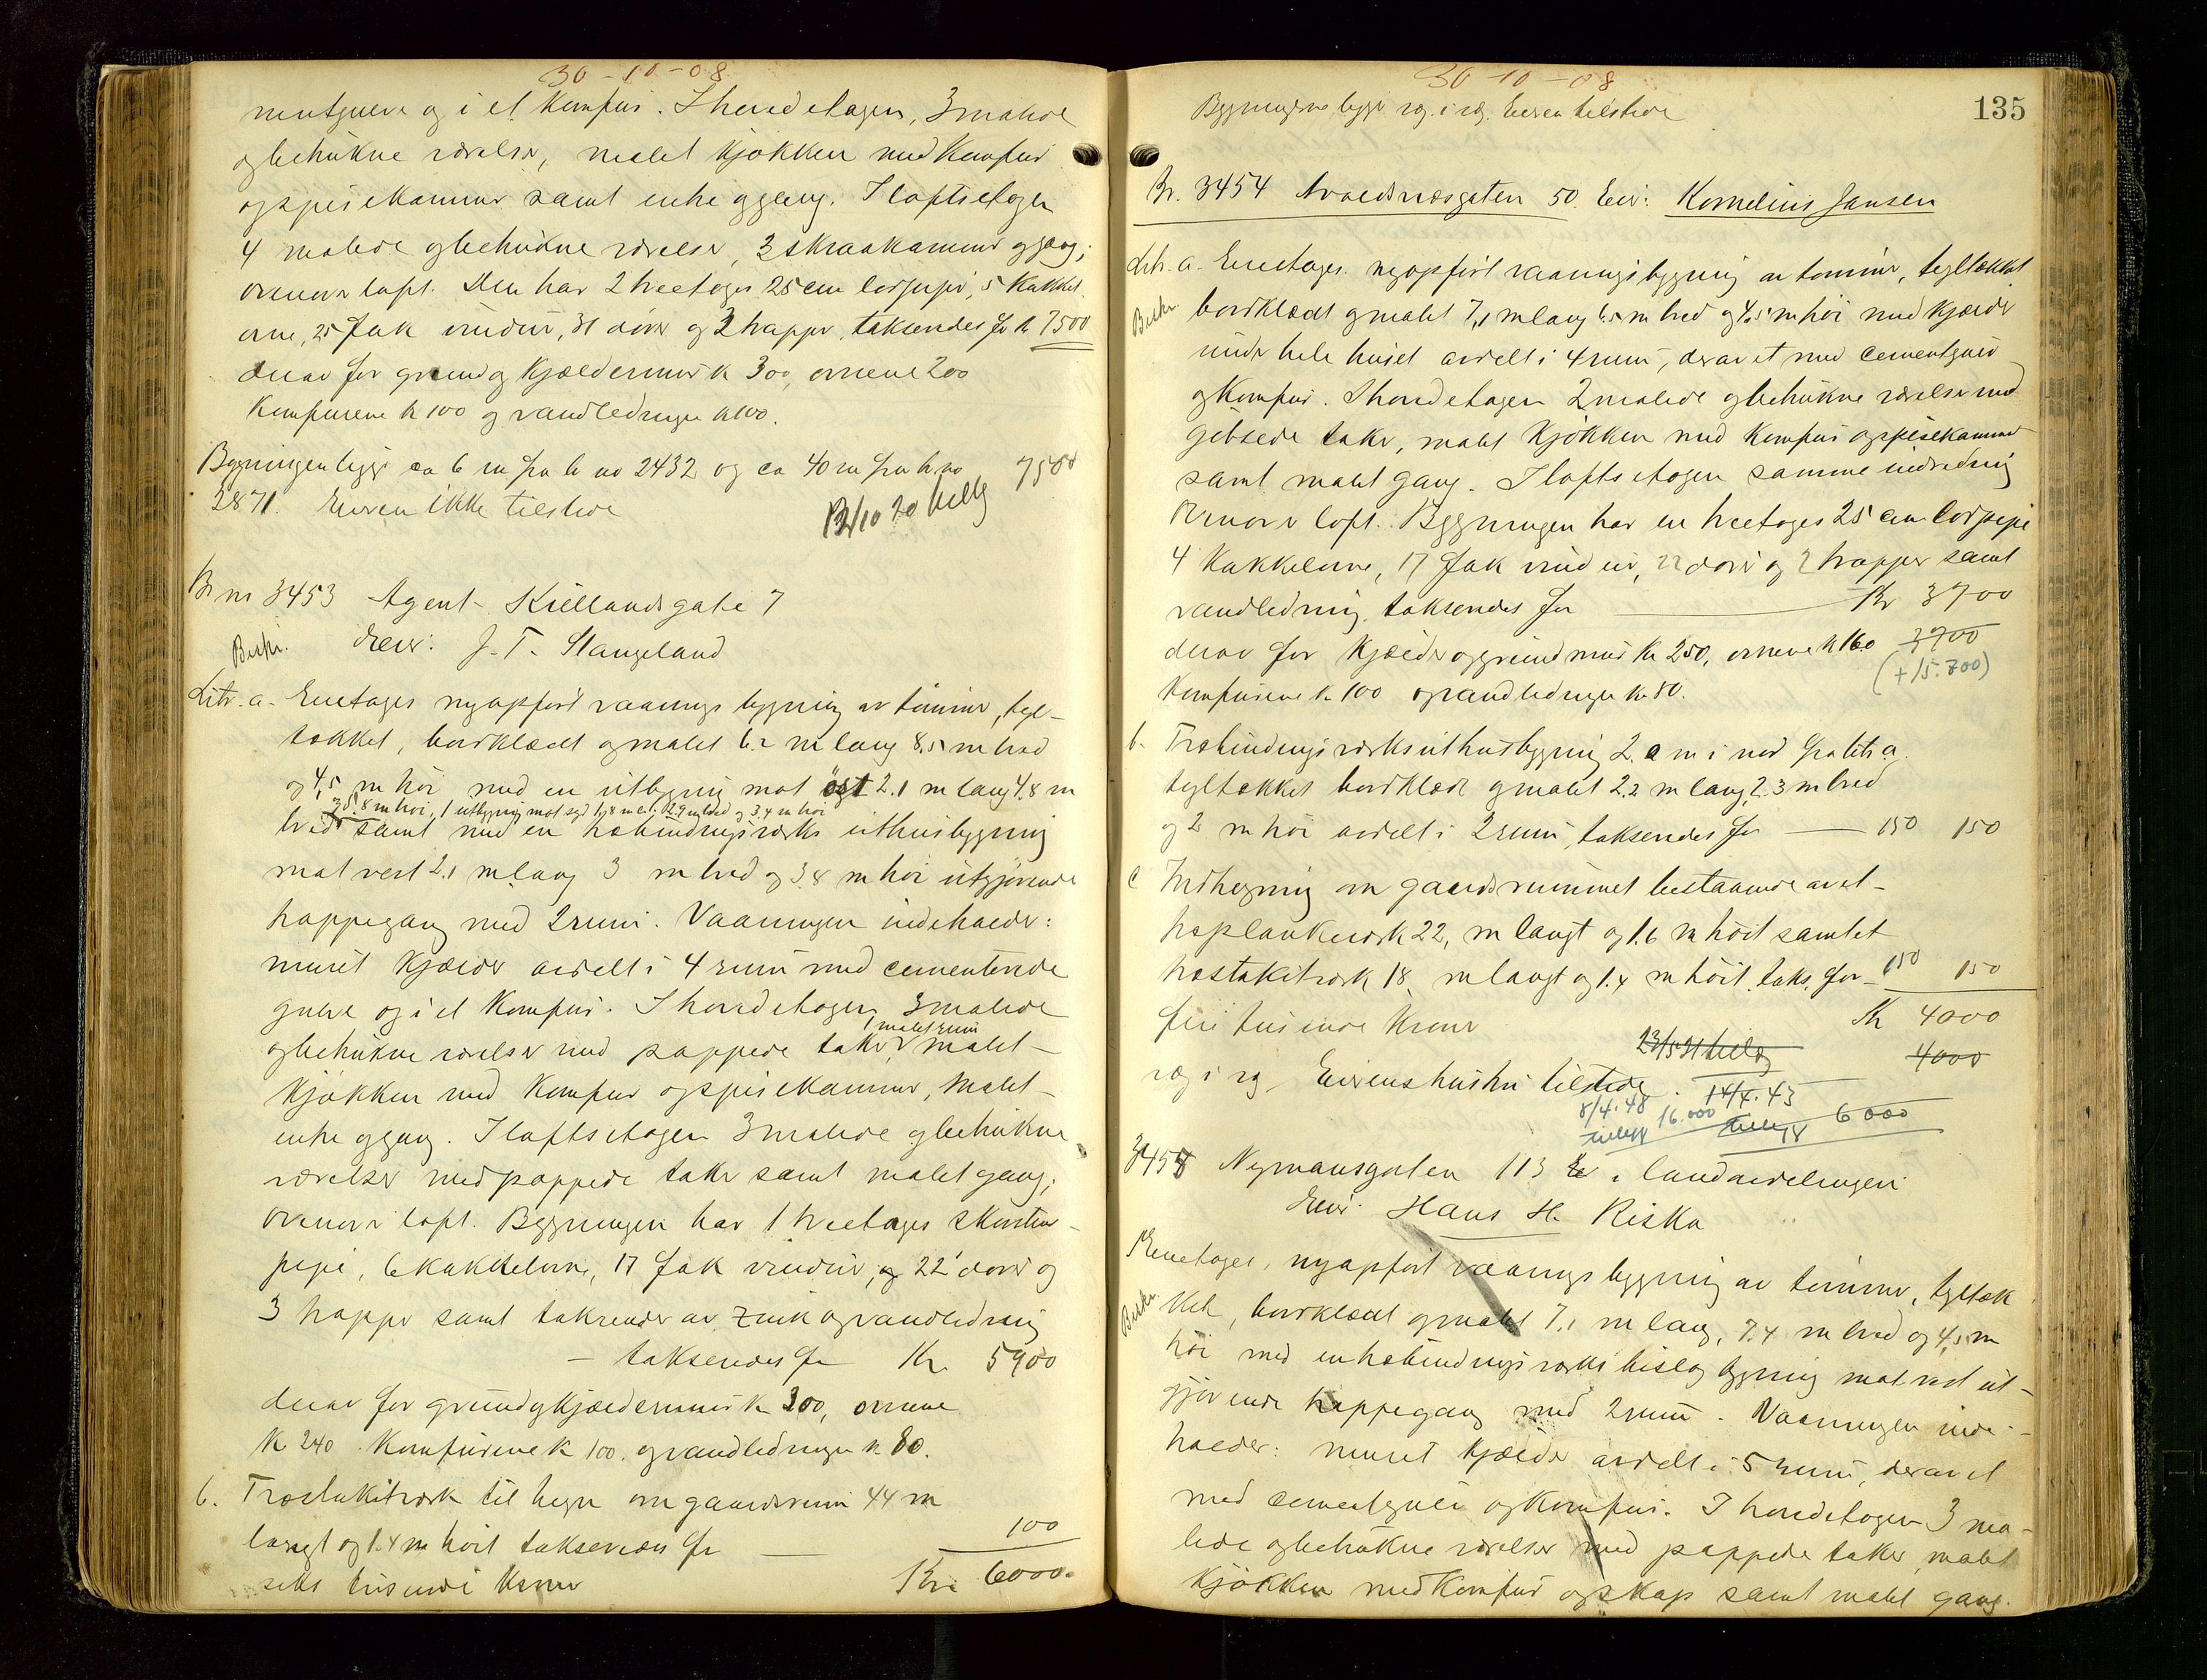 30-10-08
mentgulve og i et Komfur. I hovedetagen, 3 malede
og betrukne værelser, malet Kjøkken med Komfur
og spisekammer samt entre og gang. I loftsetagen
4 malede og betrukne værelser, 3 skraakammer og gang;
ovenover loft. Den har 2 treetages 25 cm lodpiper, 5 kakkel-
ovne, 25 fak vinduer, 31 dører og 3 trapper, taksendes for kr 7500
derav for grund og kjældermur kr 300, ovnene 200
Komfurene kr 100 og vandledningen kr 100.
Bygningen ligger ca 6 m fra br no 2432 og ca 40 m fra br no 7500
2871. Eieren ikke tilstede
Br no 3453 Agent Kiellandsgate 7
Eier: J. T. Stangeland
Litr. a. Enetages nyopført vaaningsbygning av tømmer, tegl-
tækket, bordklædt og malet 6.2 m lang 8.5 m bred
og 4,5 m høi med en utbygning mot øst 2.1 m lang 4.8 m
og 5.8 m høi, 1 utbygning mot syd 1,8 m l. 2.9 m bred og 3.4 m høi
bred samt med en træbindingsværks uthusbygning
mot vest 2.1 m lang 3 m bred og 3.8 m høi utgjørende
trappegang med 2 rum. Vaaningen indeholder:
muret kjælder avdelt i 4 rum med cementerede
gulve og i et Komfur. I hovedetagen 3 malede
1 malet rum
og betrukne værelser med pappede taker, malet
Kjøkken med Komfur og spisekammer, malet
entre og gang. I loftsetagen 3 malede og betrukne
værelser med pappede taker samt malet gang;
ovenover loft. Bygningen har 1 treetages skorstens-
pipe, 6 kakkelovne, 17 fak vinduer, og 22 dører og
3 trapper samt takrender av zink og vandledning
– taksendes for Kr. 5900
derav for grund og kjældermur kr 300, ovnene
kr 240 Komfurene kr 100. og vandledningen kr 80.
b. Træstakitværk til hegn om gaardsrum 44 m
langt og 1.4 m høit taksendes for 100
seks tusinde kroner Kr. 6000.
30-10-08
Bygningerne ligger sig. i sig. Eieren tilstede
135
Br. 3454 Avaldsnæsgaten 50. Eier: Kornelius Jansen
Litr. a. Enetages nyopført vaaningsbygning av tømmer, tegltækket
bordklædt og malet 7,1 m lang 6.5 m bred og 4.5 m høi med kjælder
under hele huset avdelt i 4 rum, derav et med cementgulv
og Komfur. I hovedetagen 2 malede og betrukne værelser med
gibsede taker, malet Kjøkken med Komfur og spisekammer
samt malet gang. I loftsetagen samme indredning
Ovenover loft. Bygningen har en treetages 25 cm lodpipe
4 Kakkelovne, 17 fak vinduer, 22 dører og 2 trapper samt
vandledning, taksendes for Kr 3700
derav for kjælder og grundmur kr 250, ovnene kr 160 3700
Komfurene kr 100 og vandledningen kr 80. (+15.700)
b. Træbindingsværksuthusbygning 2.0 m i nord fra litr a.
tegltækket bordklædt og malet 2.2 m lang, 2.3 m bred
og 2 m høi avdelt i 2 rum, taksendes for 150 150
c Indhegning om gaardsrummet bestaaende av et
træplankeværk 22, m langt og 1.6 m høit samt et
træstakitværk 18, m langt og 1.4 m høit. taks. for 150 150
fire tusinde Kroner Kr 4000
23/5 31 4000
sig i sig Eierens hustru tilstede. 14/4.43
8/4.48 16.000 tillegg 6000
tillegg
3458 Nymansgaten 113 i landavdelingen
Eier: Hans H. Riska
Enetages, nyopført vaaningsbygning av tømmer, tegltæk
ket, bordklædt og malet 7,1 m lang, 7.4 m bred og 4,5 m
høi med en træbindingsværks bislag bygning mot vest ut-
gjørende trappegang med 2 rum. Vaaningen inde-
holder: muret kjælder avdelt i 5 rum, derav et
med cementgulv og Komfur. I hovedetagen 3 ma-
lede og betrukne værelser med pappede taker, malet
Kjøkken med Komfur og skap samt malet gang.